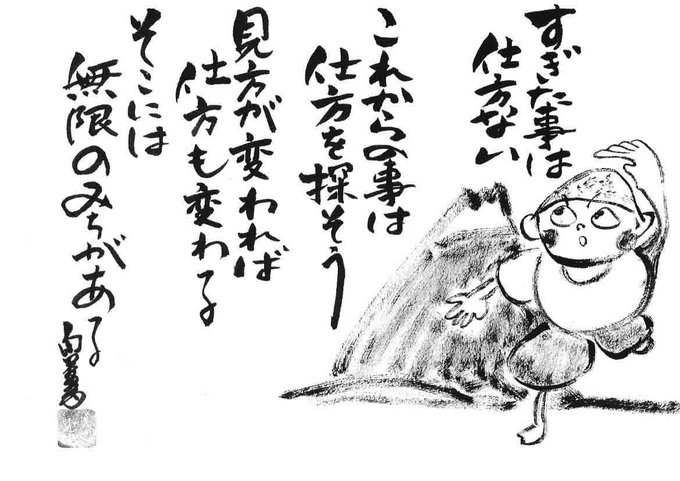 すぎた事は
仕方ない
これからの事は
仕方を探そう
見方が変われば
仕方も変わる
そこには
無限のみちがある